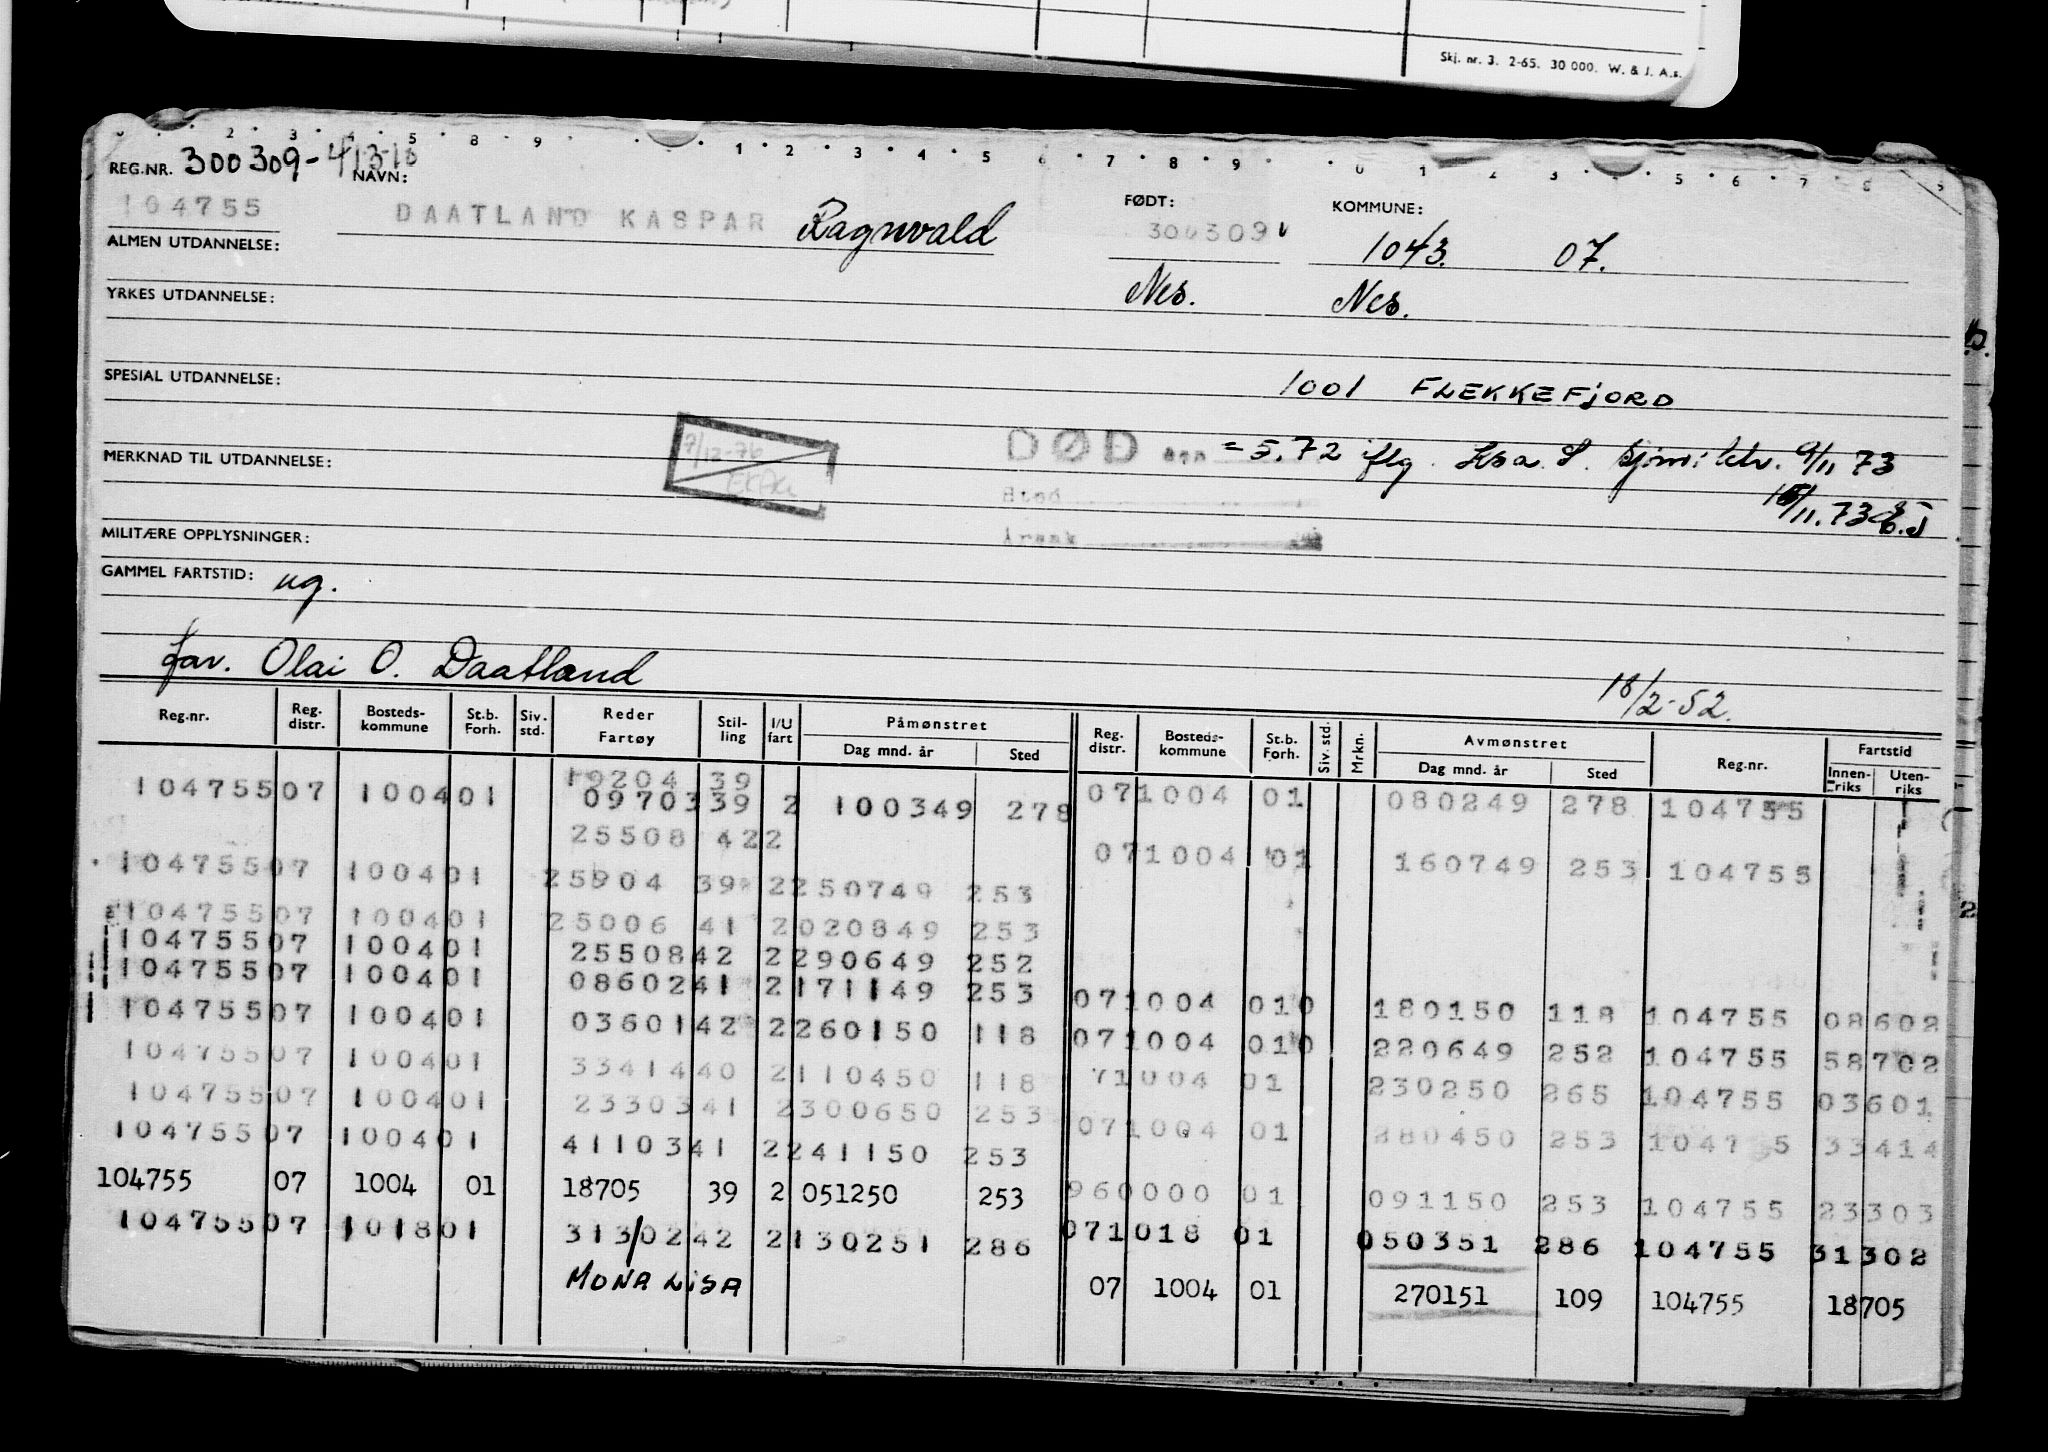 Skj. nr. 3. 2-65. 30 000. W. & J. A.s.
REG.NR. 300309-41316
NAVN:
104755 DAATLAND KASPAR Ragnvald
FØDT: 300309
KOMMUNE: 1043. 07.
ALMEN UTDANNELSE:
Nes. Nes.
YRKES UTDANNELSE:
SPESIAL UTDANNELSE:
1001 FLEKKEFJORD
7/12-76
DØD den = 5.72 iflg. 9/11 73
MERKNAD TIL UTDANNELSE:
Sted
15/11.73
Årsak
MILITÆRE OPPLYSNINGER:
GAMMEL FARTSTID: ug.
far. Olai O. Daatland
18/2-52.
Reg.nr. Reg. distr. Bosteds-kommune St.b. Forh. Siv. std. Reder Fartøy Stil-ling I/U fart Påmønstret Dag mnd. år Sted Reg. distr. Bosteds-kommune St.b. Forh. Siv. std. Mrkn. Avmønstret Dag mnd. år Sted Reg.nr. Fartstid Innen-riks Uten-riks
19204 39
104755 07 1004 01 09703 39 2 100349 278 07 1004 01 080249 278 104755
25508 42 2
104755 07 1004 01 25904 39 2 250749 253 07 1004 01 160749 253 104755
104755 07 1004 01 25006 41 2 020849 253
104755 07 1004 01 25508 42 2 290649 252
104755 07 1004 01 08602 41 2 171149 253 07 1004 01 0 180150 118 104755 08602
104755 07 1004 01 03601 42 2 260150 118 07 1004 01 0 220649 252 104755 58702
104755 07 1004 01 33414 40 2 110450 118 71004 01 230250 265 104755 03601
104755 07 1004 01 23303 41 2 300650 253 07 1004 01 280450 253 1047 5 33414
104755 07 1004 01 41103 41 2 241150 253
104755 07 1004 01 18705 39 2 051250 253 960000 01 091150 253 104755 23303
104755 07 1018 01 31302 42 2 130251 286 07 1018 01 050351 286 104755 31302
MONA LISA 07 1004 01 270151 109 104755 18705